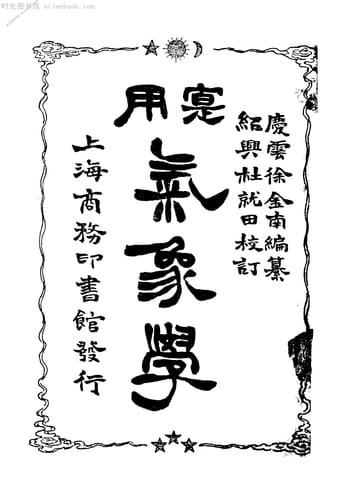 时光图书馆
alimebook.com
慶雲徐金南編纂
紹興杜就田校訂
寔用
氣象學
上海商務印書館發行